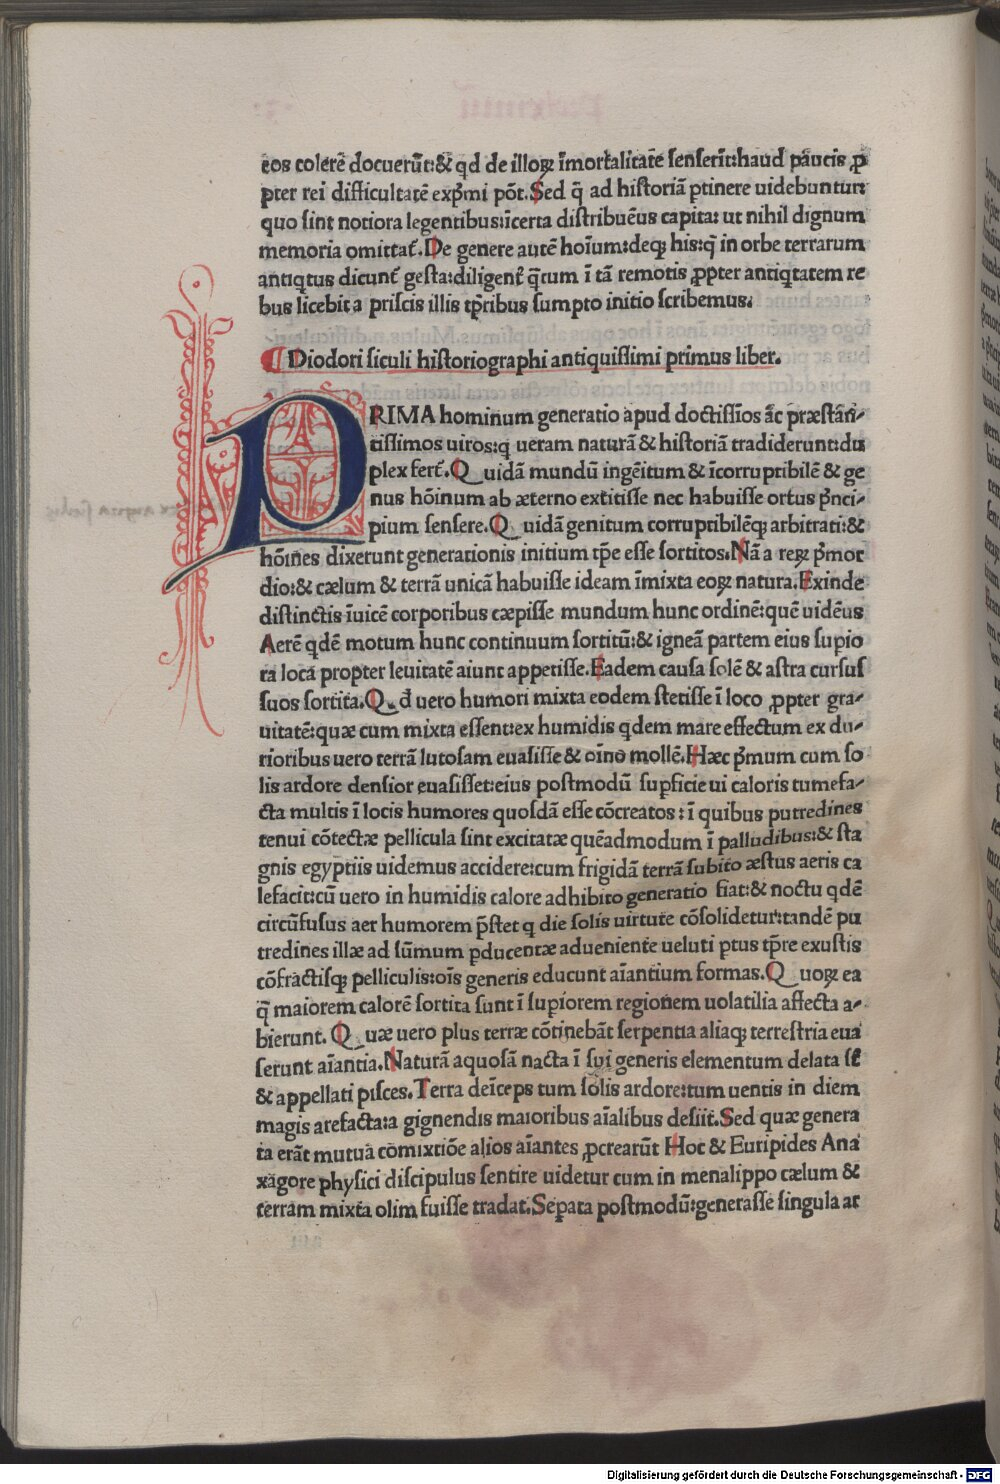 eos colerē docuerūt:&qđ de illoꝝ īmortalitate senserīt:haud paucis ꝓ
pter rei difficultatē exp̄mi pōt.Sed q̄ ad historiā ꝑtinere uidebuntur:
quo sint notiora legentibus:īcerta distribuēus capita: ut nihil dignum
memoria omittat᷑.De genere autē hoīum:deqꝫ his:q̄ in orbe terrarum
antiq̇tus dicunt᷑ gesta:diligent᷑ q̄tum ī tā remotis ꝓpter antiq̇tatem re
bus licebit a priscis illis tp̄ribus sumpto initio scribemus.
¶ Diodori siculi historiographi antiquissimi primus liber.
PRIMA hominum generatio apud doctissīos āc præstān-
tissimos uiros:q̇ ueram naturā & historiā tradiderunt:du
plex fert᷑.Quidā mundū ingēitum & īcorruptibilē & ge
nus hōinum ab æterno extitisse nec habuisse ortus p̄nci-
pium sensere.Quidā genitum corruptibilēqꝫ arbitrati:&
hōines dixerunt generationis initium tp̄e esse sortitos.Nā a reꝝ p̄mor
dio:& cælum & terrā unicā habuisse ideam īmixta eoꝝ natura.Exinde
distinctis īuicē corporibus cæpisse mundum hunc ordinē:quē uidēus
Aerē qđē motum hunc continuum sortitū:& igneā partem eius supio
ra loca propter leuitatē aiunt appetisse.Eadem causa solē & astra cursus
suos sortita.Qđ uero humori mixta eodem stetisse ī loco ꝓpter gra-
uitatē:quæ cum mixta essent:ex humidis qđem mare effectum ex du-
rioribus uero terrā lutosam euasisse & oīno mollē.Hæc p̄mum cum so
lis ardore densior euasisset:eius postmodū suꝑficie ui caloris tumefa-
cta multis ī locis humores quosdā esse cōcreatos:ī quibus putredines
tenui cōtectæ pellicula sint excitatæ quēadmodum ī palludibus:& sta
gnis egyptiis uidemus accidere:cum frigidā terrā subito æstus aeris ca
lefacit:cū uero in humidis calore adhibito generatio fiat:& noctu qđē
circūfusus aer humorem p̄stet q̇ die solis uirtute cōsolidetur:tandē pu
tredines illæ ad sūmum ꝑducentæ adueniente ueluti ꝑtus tp̄re exustis
cōfractisqꝫ pelliculis:oīs generis educunt aīantium formas.Quoꝝ ea
q̄ maiorem calorē sortita sunt ī supiorem regionem uolatilia affecta a-
bierunt. Quæ uero plus terræ cōtinebāt serpentia aliaqꝫ terrestria eua
serunt aīantia.Naturā aquosā nacta ī sui generis elementum delata sūt
& appellati pisces.Terra deīceps tum solis ardore:tum uentis in diem
magis arefacta:a gignendis maioribus aīalibus desiit.Sed quæ genera
ta erāt mutua cōmixtiōe alios aīantes ꝓcrearūt Hoc & Euripides Ana
xagore physici discipulus sentire uidetur cum in menalippo cælum &
terram mixta olim fuisse tradat.Seꝑata postmodū:generasse singula ar
Digitalisierung gefördert durch die Deutsche Forschungsgemeinschaft - DFG